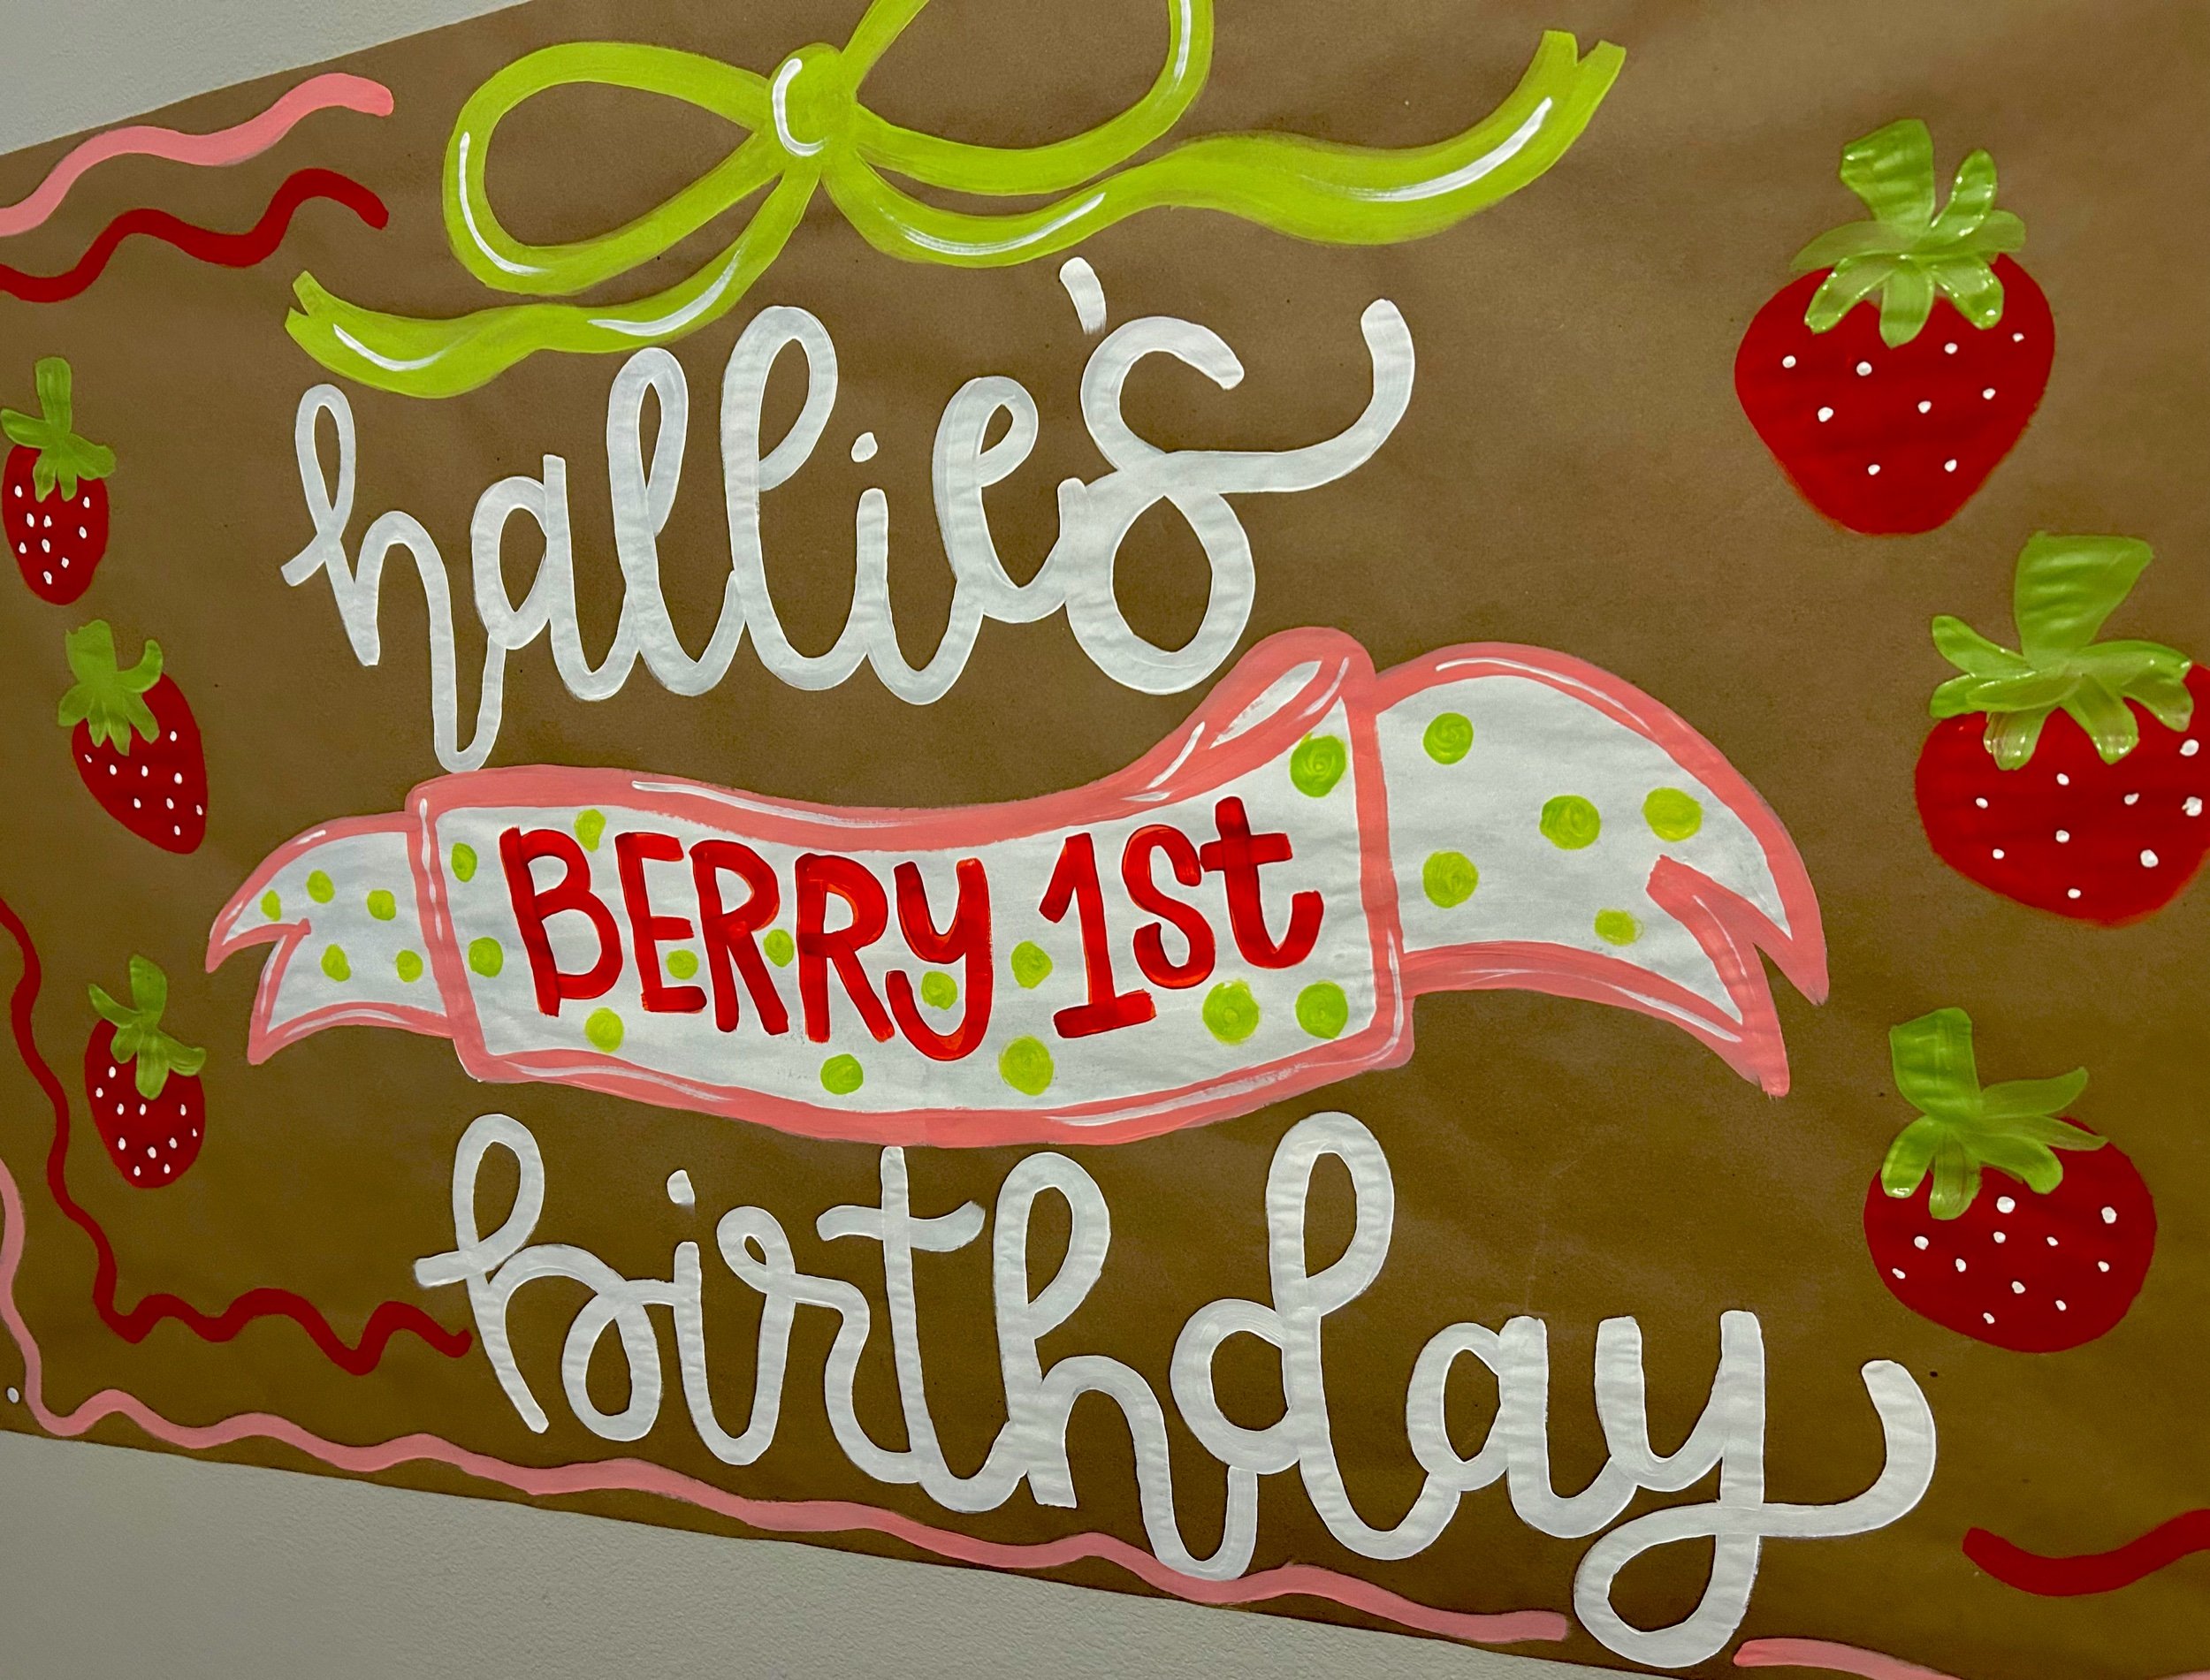 hallie's
BERRY 1st
birthday